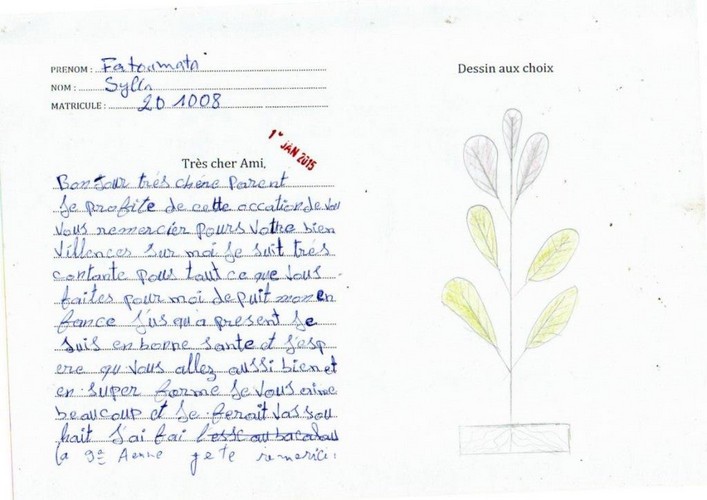 PRENOM : Fatoumata
NOM : Sylla
MATRICULE : 201008
Dessin aux choix
1* JAN 2015
Très cher Ami,
Bonjour trés chére Parent
Je profite de cette occation de vou
vous remercier pours votre bien
villences sur moi Je suit trés
contante pous tout ce que vous
faites pour moi depuit mon en
fance J'usqu'a present Je
suis en bonne sante et J'esp
ere qu vous allez aussi bien et
en super forme Je vous
beaucoup et Je ferait vos sou
hait J'ai fai
la 9e Aenne je te remerice :